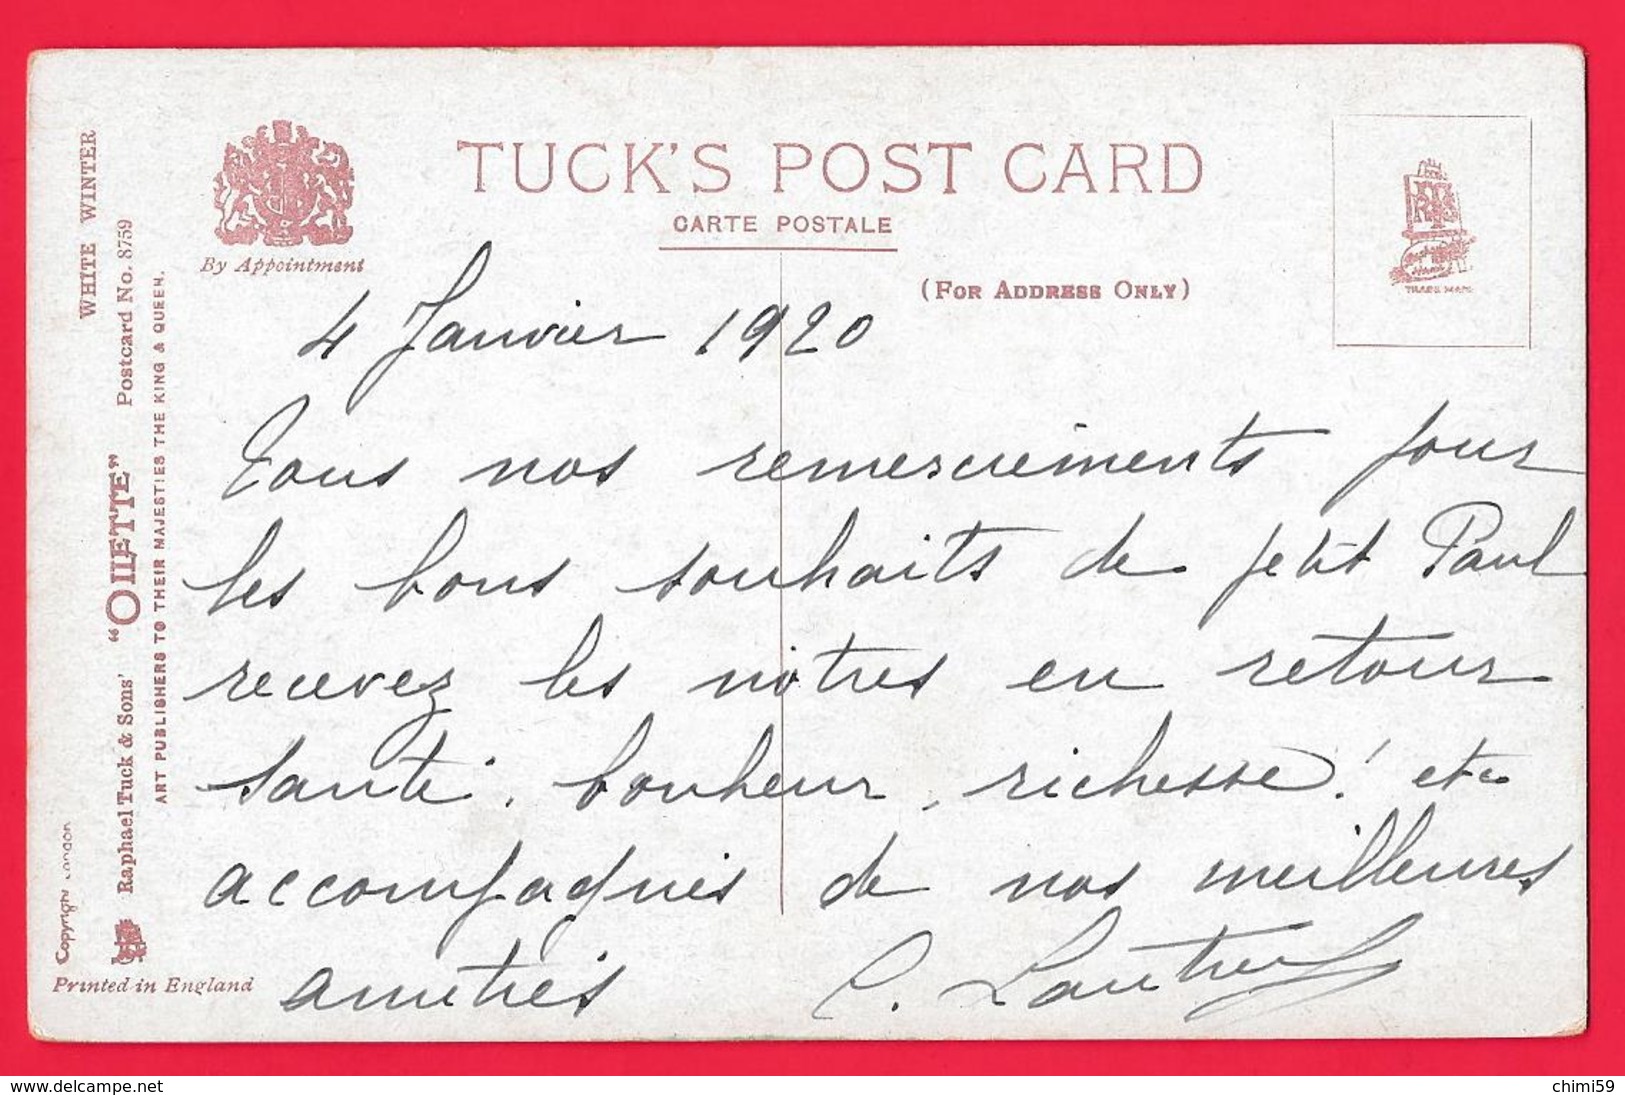 TUCK'S POST CARD
CARTE POSTALE
By Appointment
(FOR ADDRESS ONLY)
TRADE MARK
WHITE WINTER
Postcard No. 8759
Raphael Tuck & Sons' "OILETTE"
ART PUBLISHERS TO THEIR MAJESTIES THE KING & QUEEN.
Copyright London
Printed in England
4 Janvier 1920
Tous nos remerciements pour
les bons souhaits de petit Paul
recevez les nôtres en retour
santé, bonheur, richesse! etc
accompagnés de nos meilleures
amitiés C.
www.delcampe.net
chimi59